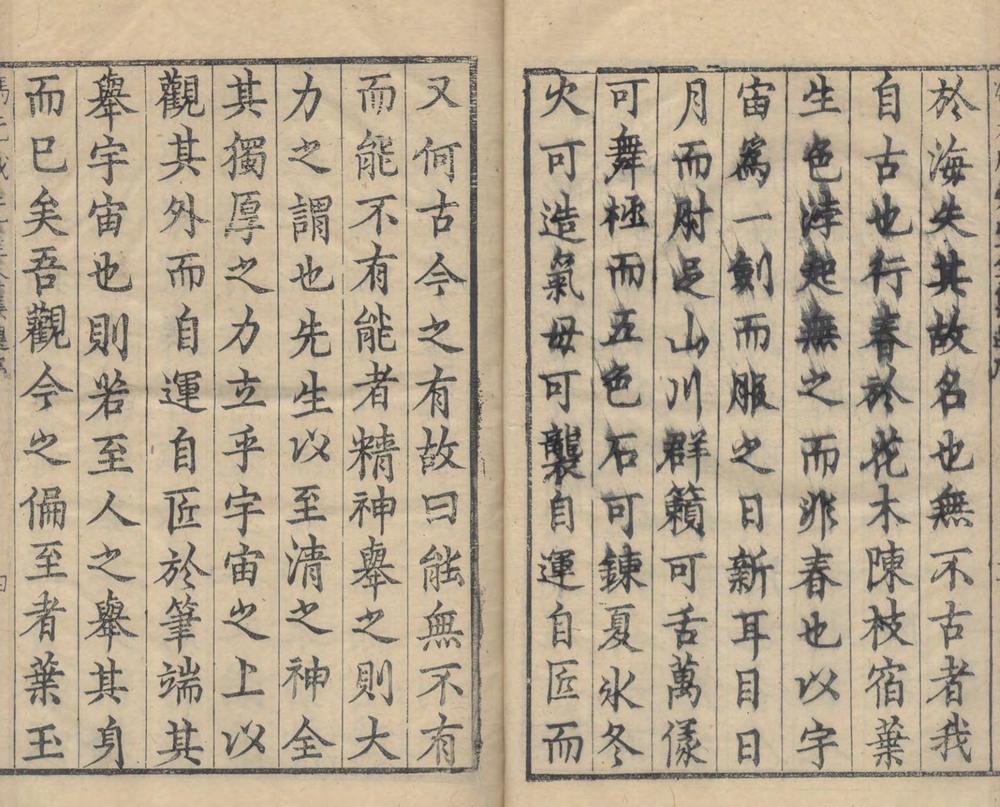 於海失其故名也無不古者我
自古也行春於花木陳枝宿葉
生色浡起無之而非春也以宇
宙爲一劑而服之日新耳目日
月而肘足山川群籟可舌萬
可舞極而五色石可鍊夏氷冬
火可造氣母可襲自運自匠而
又何古今之有故曰能無不有
而能不有能者精神舉之則大
力之謂也先生以至清之神全
其獨厚之力立乎宇宙之上以
觀其外而自運自匠於筆端其
舉宇宙也則若至人之舉其身
而已矣吾觀今之偏至者葉玉